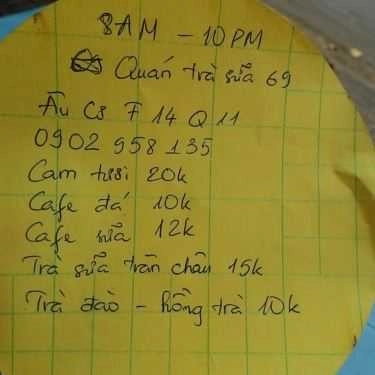 8AM - 10PM
Quán trà sữa 69
Âu Cơ F 14 Q 11
0902 958 135
Cam tươi 20k
Cafe đá 10k
Cafe sữa 12k
Trà sữa trân châu 15k
Trà đào - hồng trà 10k